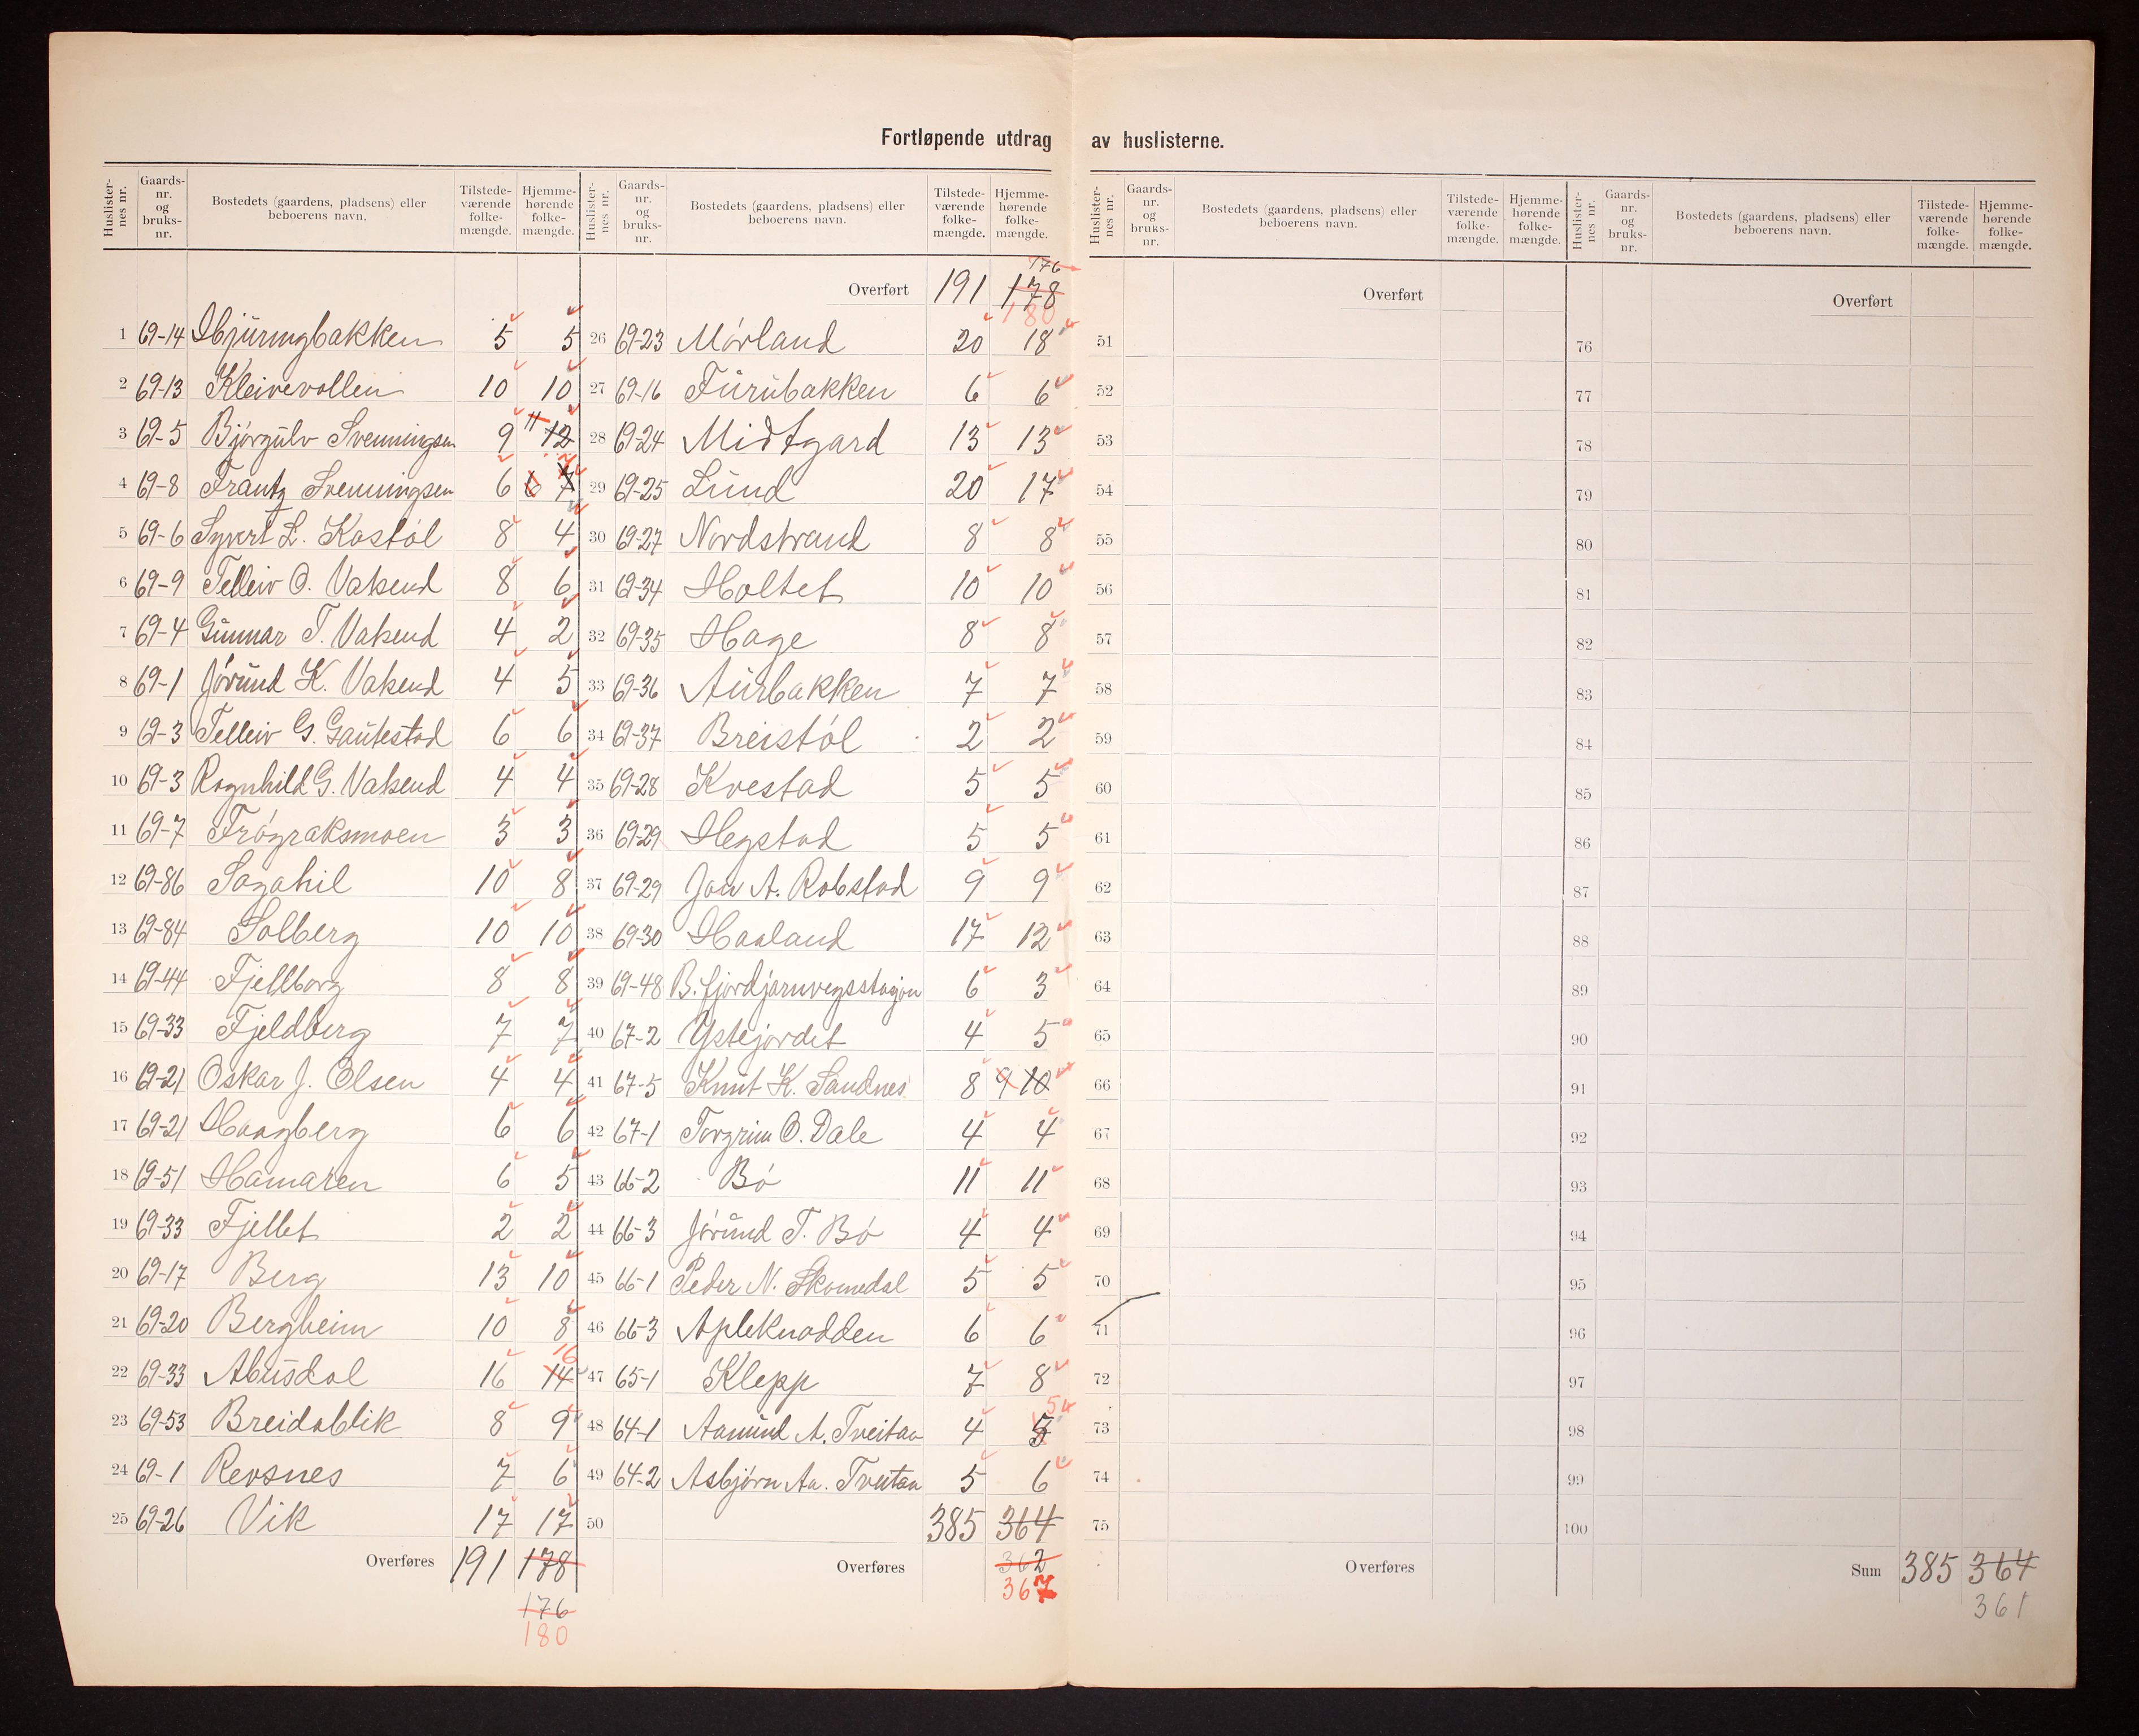 Fortløpende utdrag av huslisterne.
Huslister-nes nr. Gaards-nr. og bruks-nr. Bostedets (gaardens, pladsens) eller beboerens navn. Tilstede-værende folke-mængde. Hjemme-hørende folke-mængde.
1 69-14 Hjuringbakken 5 5
2 69-13 Kleivevollen 10 10
3 69-5 Bjørgulv Svenningsen 9 11 12
4 69-8 Frantz Svenningsen 6 6 7
5 69-6 Syvert L. Kostøl 8 4
6 69-9 Telleiv O. Vatsend 8 6
7 69-4 Gunnar T. Vatsend 4 2
8 69-1 Jørund K. Vatsend 4 5
9 69-3 Telleiv G. Gautestad 6 6
10 69-3 Ragnhild G. Vatsend 4 4
11 69-7 Frøyraksmoen 3 3
12 69-86 Sagahil 10 8
13 69-84 Solberg 10 10
14 69-44 Fjellborg 8 8
15 69-33 Fjeldberg 7 7
16 69-21 Oskar J. Olsen 4 4
17 69-21 Haagberg 6 6
18 69-51 Hamaren 6 5
19 69-33 Fjellet 2 2
20 69-17 Berg 13 10
21 69-20 Bergheim 10 8
22 69-33 Abusdal 16 14 16
23 69-53 Breidablik 8 9
24 69-1 Revsnes 7 6
25 69-26 Vik 17 17
Overføres 191 178
176
180
Huslister-nes nr. Gaards-nr. og bruks-nr. Bostedets (gaardens, pladsens) eller beboerens navn. Tilstede-værende folke-mængde. Hjemme-hørende folke-mængde.
176
Overført 191 178
180
26 69-23 Mørland 20 18
27 69-16 Furubakken 6 6
28 69-24 Midtgard 13 13
29 69-25 Lund 20 17
30 69-27 Nordstrand 8 8
31 69-34 Holtet 10 10
32 69-35 Hage 8 8
33 69-36 Aurbakken 7 7
34 69-37 Breistøl 2 2
35 69-28 Kvestad 5 5
36 69-29 Hegstad 5 5
37 69-29 Jon A. Robstad 9 9
38 69-30 Haaland 17 12
39 69-48 B.fjordjarnvegsstasjon 6 3
40 67-2 Ystejordet 4 5
41 67-5 Knut K. Sandnes 8 9 10
42 67-1 Torgrim O. Dale 4 4
43 66-2 Bø 11 11
44 66-3 Jørund T. Bø 4 4
45 66-1 Peder N. Skomedal 5 5
46 66-3 Apleknodden 6 6
47 65-1 Klepp 7 8
48 64-1 Aamund A. Tveitaa 4 5
49 64-2 Asbjørn Aa. Tveitaa 5 6
50 385 364
Overføres 362
367
Huslister-nes nr. Gaards-nr. og bruks-nr. Bostedets (gaardens, pladsens) eller beboerens navn. Tilstede-værende folke-mængde. Hjemme-hørende folke-mængde.
Overført
51
52
53
54
55
56
57
58
59
60
61
62
63
64
65
66
67
68
69
70
71
72
73
74
75
Overføres
Huslister-nes nr. Gaards-nr. og bruks-nr. Bostedets (gaardens, pladsens) eller beboerens navn. Tilstede-værende folke-mængde. Hjemme-hørende folke-mængde.
Overført
76
77
78
79
80
81
82
83
84
85
86
87
88
89
90
91
92
93
94
95
96
97
98
99
100
Sum 385 364
361